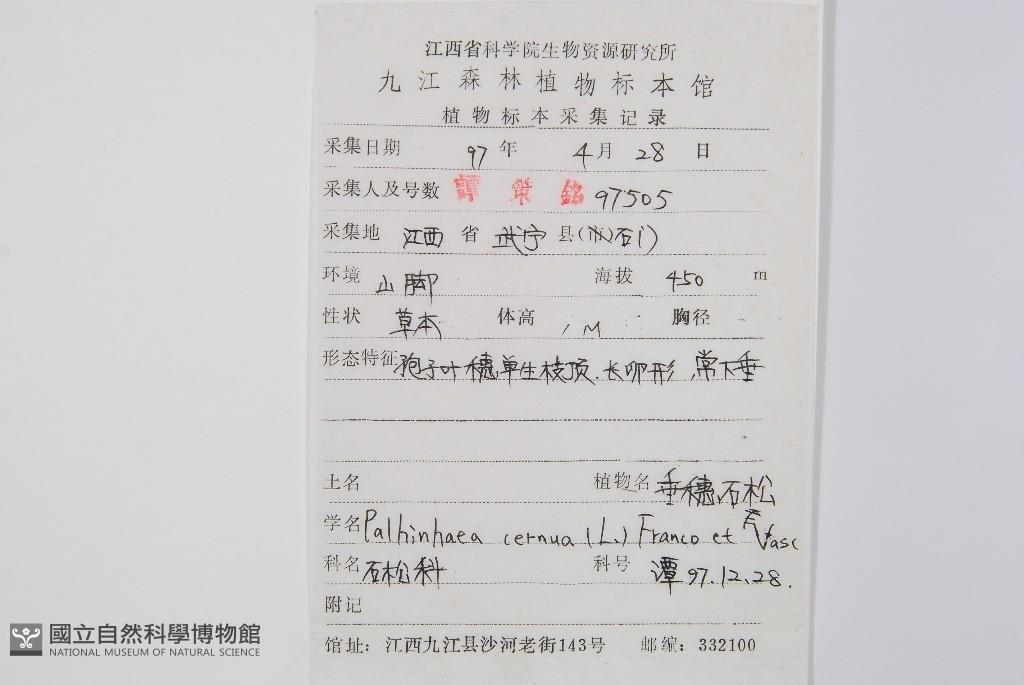 江西省科学院生物资源研究所
九江森林植物标本馆
植物标本采集记录
采集日期 97年 4月 28 日
采集人及号数 譚 策 銘 97505
采集地 江西 省 武宁 县(石门)
环境 山脚 海拔 450 m
性状 草本 体高 1 M 胸径
形态特征 孢子叶穗单生枝顶.长卵形,常下垂
土名 植物名 垂穗石松
学名 Palhinhaea cernua (L.) Franco et Vasc
科名 石松科 科号 谭 97.12.28.
附记
馆址: 江西九江县沙河老街143号 邮编: 332100
國立自然科學博物館
NATIONAL MUSEUM OF NATURAL SCIENCE